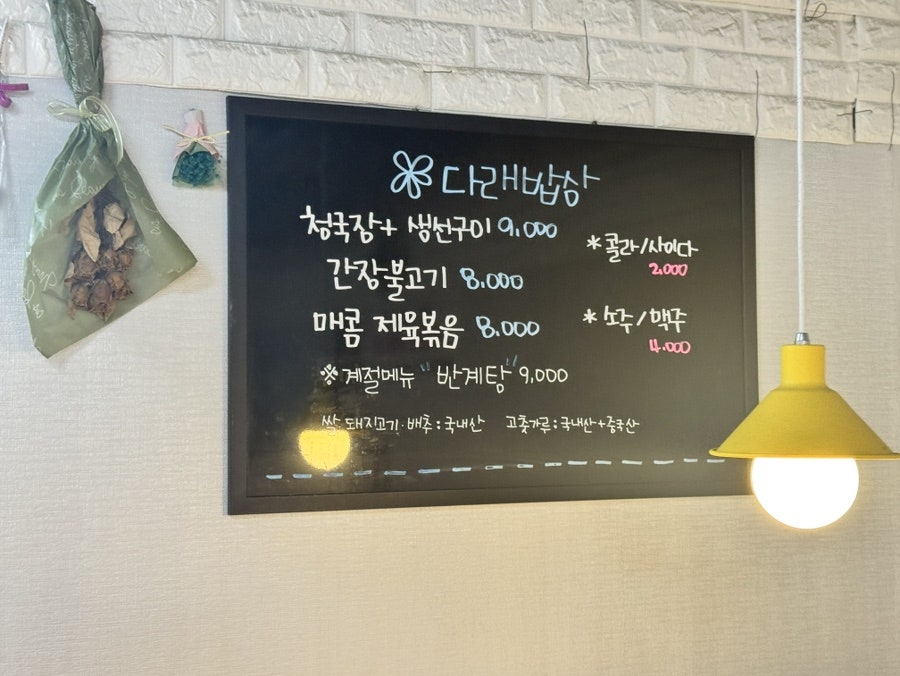 다래밥상
청국장+ 생선구이 9,000
간장불고기 8.000
매콤 제육볶음 8.000
※계절메뉴 "반계탕" 9,000
쌀, 돼지고기·배추:국내산 고춧가루:국내산+중국산
*콜라/사이다
2.000
*소주/맥주
4.000